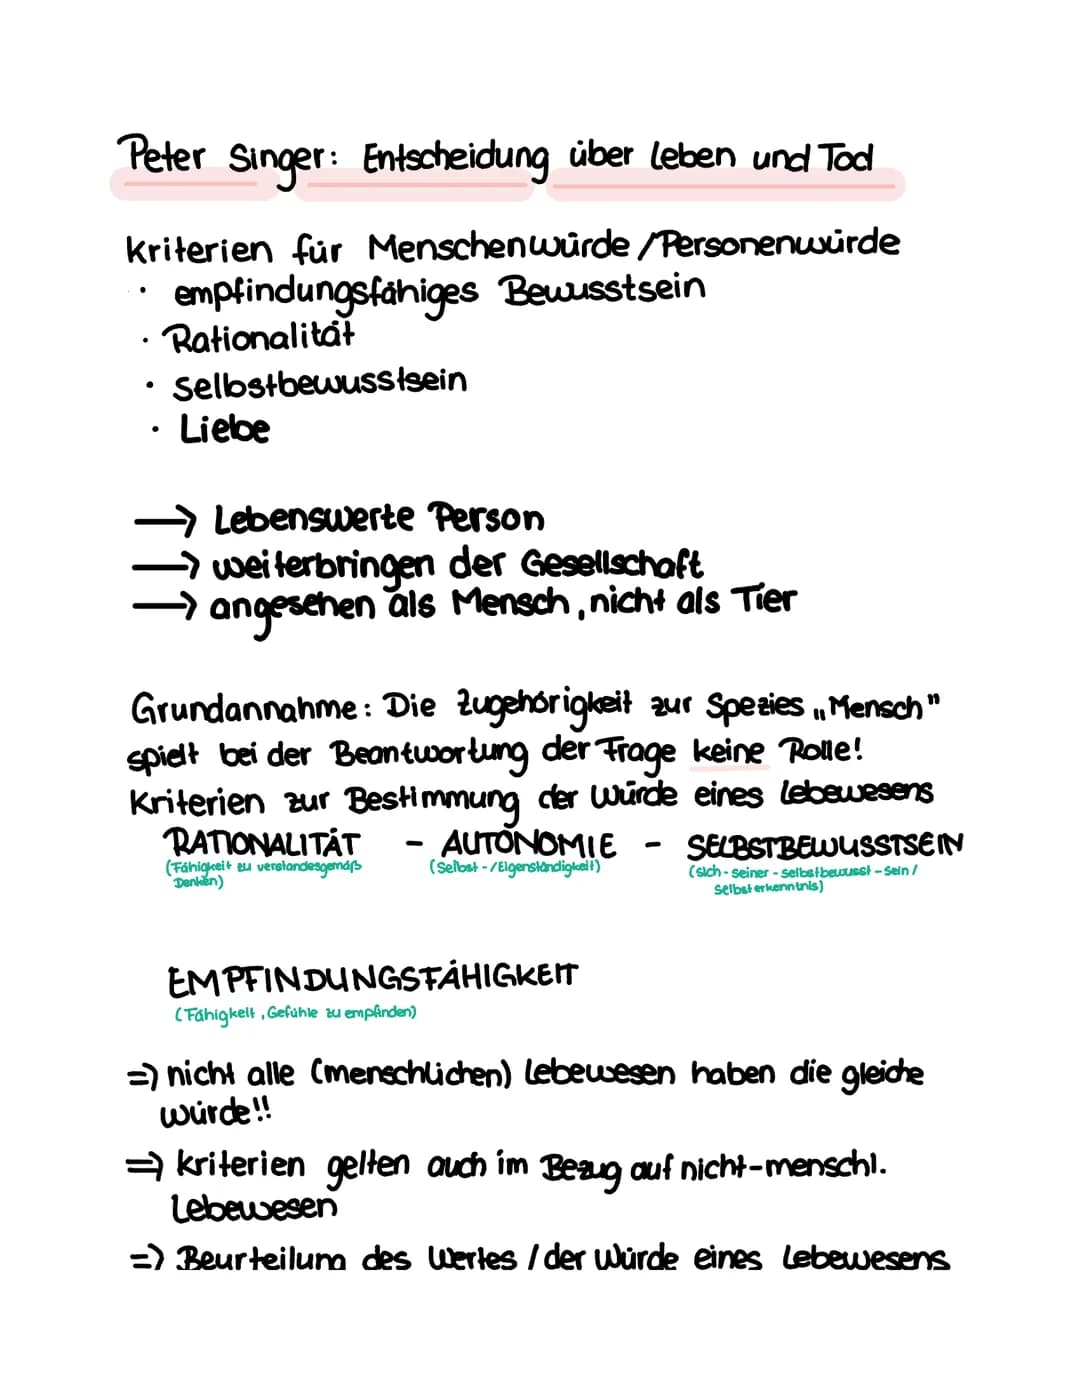 Peter Singer: Entscheidung über Leben und Tod
Kriterien für Menschenwürde/Personenwürde
· empfindungsfähiges Bewusstsein
· Rationalität
· Selbstbewusstsein
· Liebe
→ Lebenswerte Person
→ weiterbringen der Gesellschaft
→ angesehen als Mensch, nicht als Tier
Grundannahme: Die Zugehörigkeit zur Spezies „Mensch"
spielt bei der Beantwortung der Frage keine Rolle!
Kriterien zur Bestimmung der Würde eines Lebewesens
RATIONALITÄT - AUTONOMIE - SELBSTBEWUSSTSEIN
(Fähigkeit zu verstandesgemäß (Selbst-/Eigenständigkeit) (sich-seiner-selbstbewusst-sein/
Denken) Selbsterkenntnis)
EMPFINDUNGSFÄHIGKEIT
(Fähigkeit, Gefühle zu empfinden)
=> nicht alle (menschlichen) Lebewesen haben die gleiche
Würde!!
=> Kriterien gelten auch im Bezug auf nicht-menschl.
Lebewesen
=> Beurteilung des Wertes / der Würde eines Lebewesens